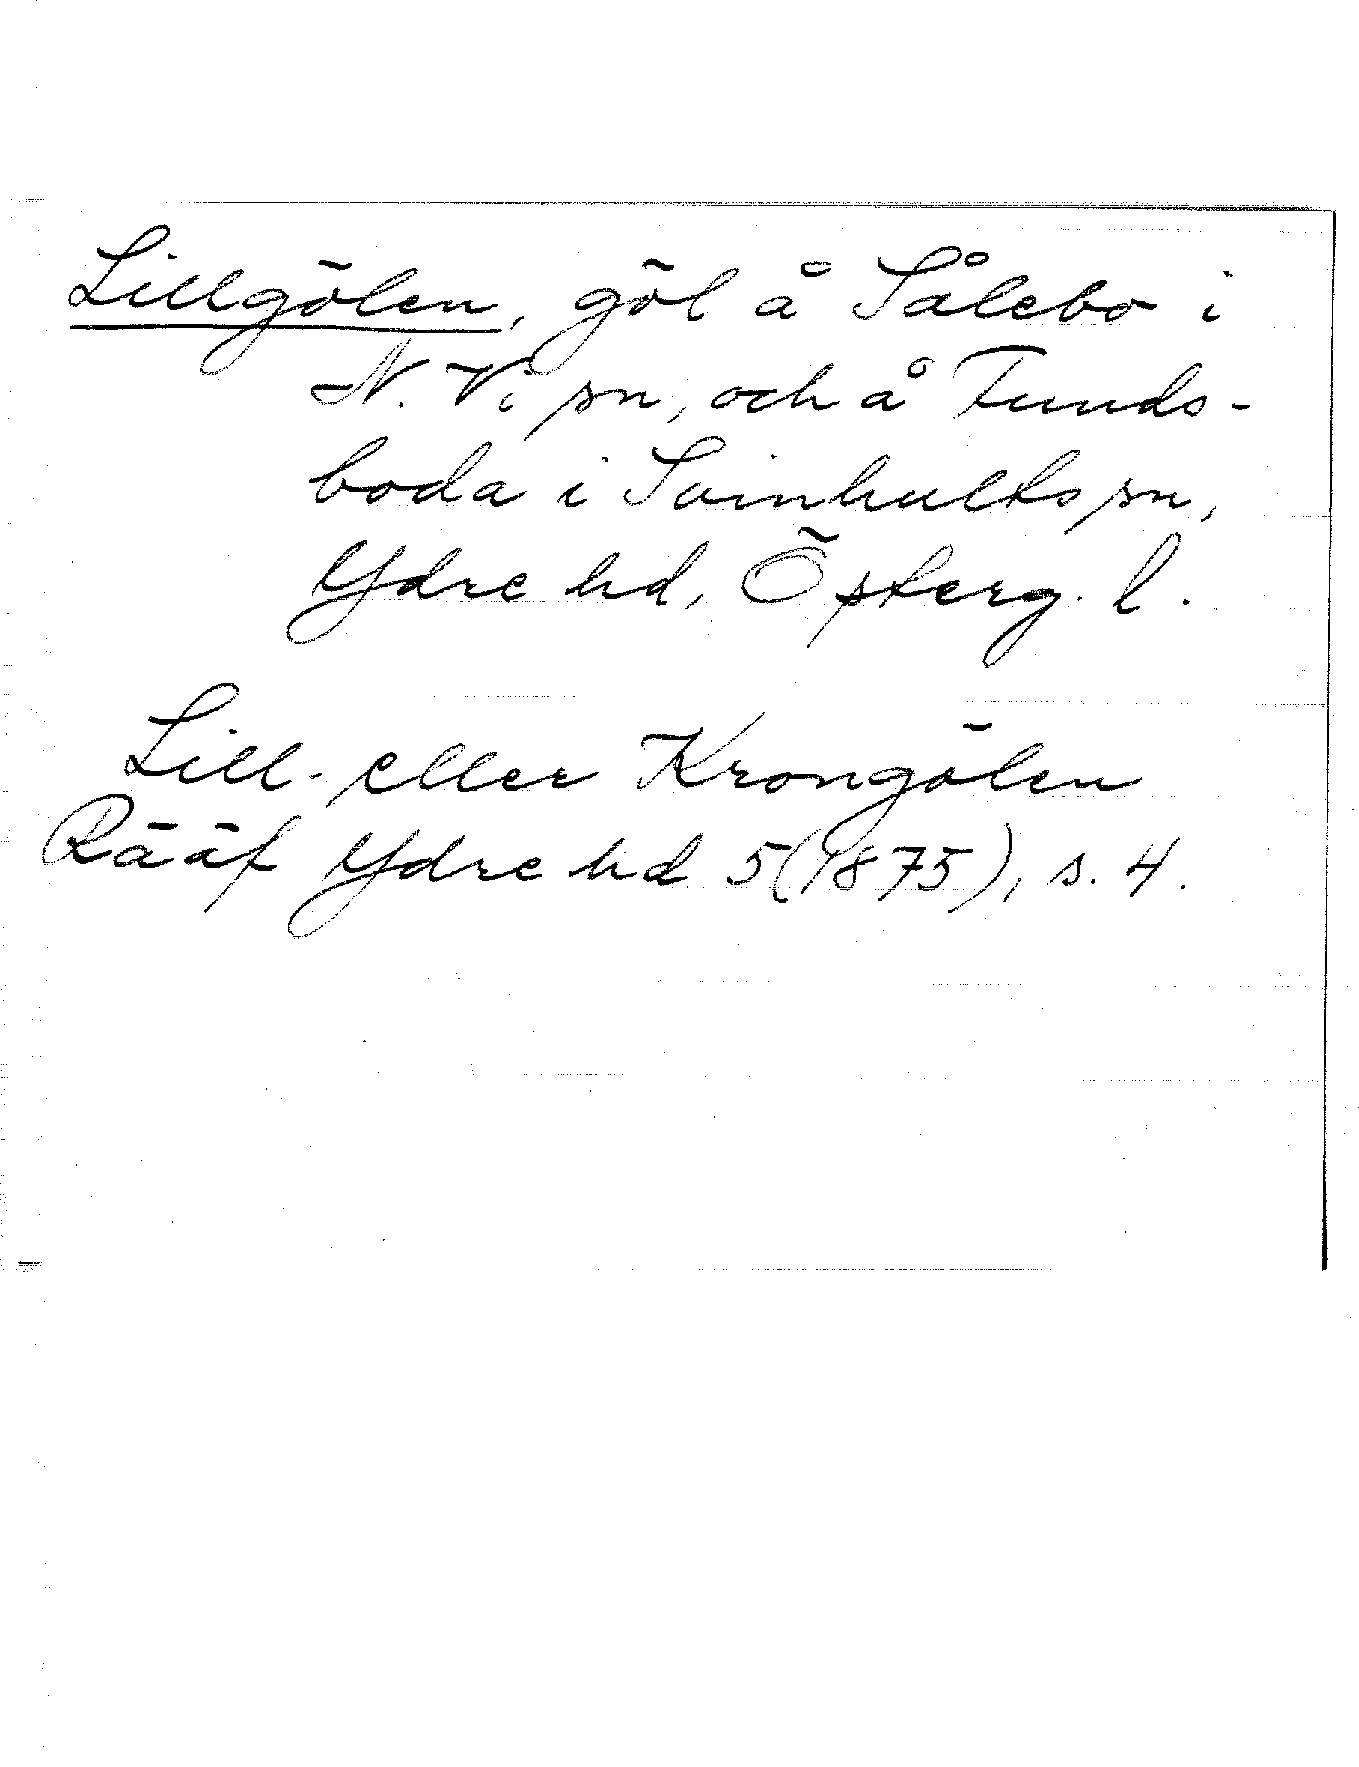 Lillgölen, göl å Sålebo i
N. Vi sn, och å Funds-
boda i Svinhults sn,
Ydre hd, Österg. l.
Lill- eller Krongölen
Rääf Ydre hd 5(1875), s. 4.